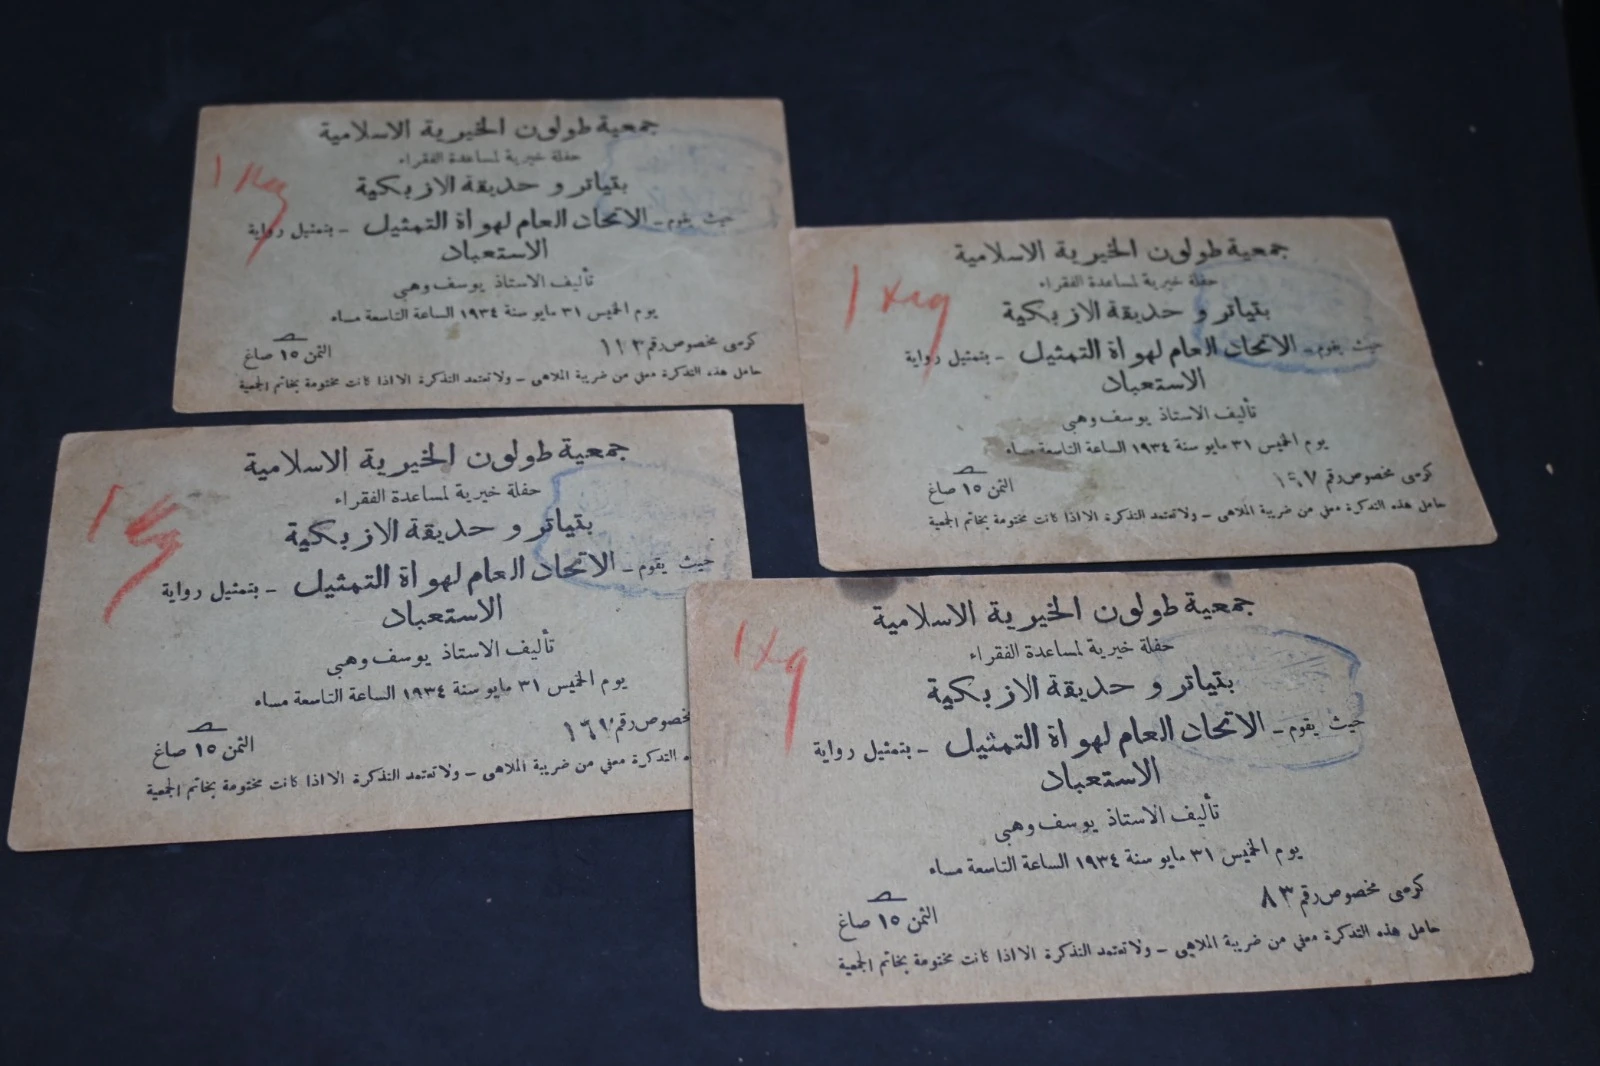 جمعية طولون الخيرية الاسلامية
حفلة خيرية لمساعدة الفقراء
بتياترو حديقة الازبكية
حيث يقوم - الاتحاد العام لهواة التمثيل - بتمثيل رواية
الاستعباد
تأليف الاستاذ يوسف وهبى
يوم الخميس ٣١ مايو سنة ١٩٣٤ الساعة التاسعة مساء
كرسى مخصوص رقم ١١٣
الثمن ١٥ صاغ
حامل هذه التذكرة معفى من ضريبة الملاهى - ولا تعتمد التذكرة الا اذا كانت مختومة بخاتم الجمعية
جمعية طولون الخيرية الاسلامية
حفلة خيرية لمساعدة الفقراء
بتياترو حديقة الازبكية
حيث يقوم - الاتحاد العام لهواة التمثيل - بتمثيل رواية
الاستعباد
تأليف الاستاذ يوسف وهبى
يوم الخميس ٣١ مايو سنة ١٩٣٤ الساعة التاسعة مساء
كرسى مخصوص رقم
الثمن ١٥ صاغ
حامل هذه التذكرة معفى من ضريبة الملاهى - ولا تعتمد التذكرة الا اذا كانت مختومة بخاتم الجمعية
جمعية طولون الخيرية الاسلامية
حفلة خيرية لمساعدة الفقراء
بتياترو حديقة الازبكية
حيث يقوم - الاتحاد العام لهواة التمثيل - بتمثيل رواية
الاستعباد
تأليف الاستاذ يوسف وهبى
يوم الخميس ٣١ مايو سنة ١٩٣٤ الساعة التاسعة مساء
مخصوص رقم
الثمن ١٥ صاغ
التذكرة معفى من ضريبة الملاهى - ولا تعتمد التذكرة الا اذا كانت مختومة بخاتم الجمعية
جمعية طولون الخيرية الاسلامية
حفلة خيرية لمساعدة الفقراء
بتياترو حديقة الازبكية
حيث يقوم - الاتحاد العام لهواة التمثيل - بتمثيل رواية
الاستعباد
تأليف الاستاذ يوسف وهبى
يوم الخميس ٣١ مايو سنة ١٩٣٤ الساعة التاسعة مساء
كرسى مخصوص رقم ٨٣
الثمن ١٥ صاغ
حامل هذه التذكرة معفى من ضريبة الملاهى - ولا تعتمد التذكرة الا اذا كانت مختومة بخاتم الجمعية